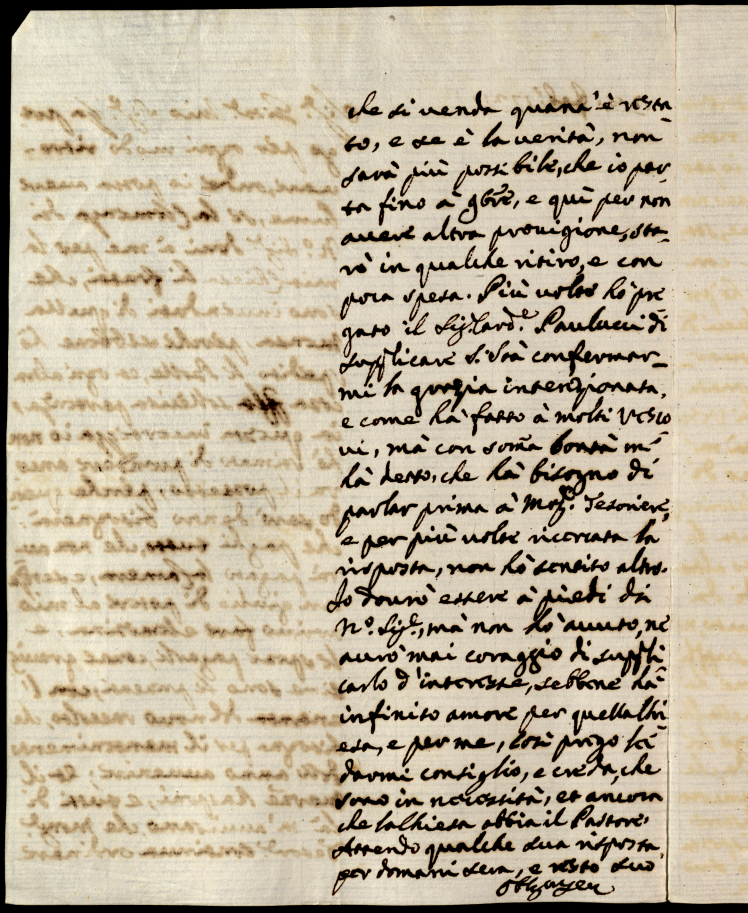 che si venda quand'è resta
to, e se è la verità, non
sarà più possibile, che io par
ta fino à 9bre, e quì per non
avere altra provigione, sta¬
rò in qualche ritiro, e con
poca spesa. Più volte hò pre
gato il Sig.r Card.e Paulucci di
supplicare S. Stà confermar¬
mi la grazia intenzionata,
e come hà fatto à molti Vesco
vi, mà con somã bontà m'
hà detto, che hà bisogno di
parlar prima à Mons.r Tesoriere,
e per più volte ricercata la
risposta, non hò sentito altro.
Io dovrò essere à piedi di
N.o Sig.e, mà non hò avuto, ne
avrò mai coraggio di suppli
carlo d'interesse, sebbene hà
infinito amore per quella Chi
esa, e per me, così prego lei
darmi consiglio, e creda, che
sono in necessità, et ancora
che la Chiesa abbia il Pastore.
Attendo qualche sua risposta
per domani sera, e resto suo